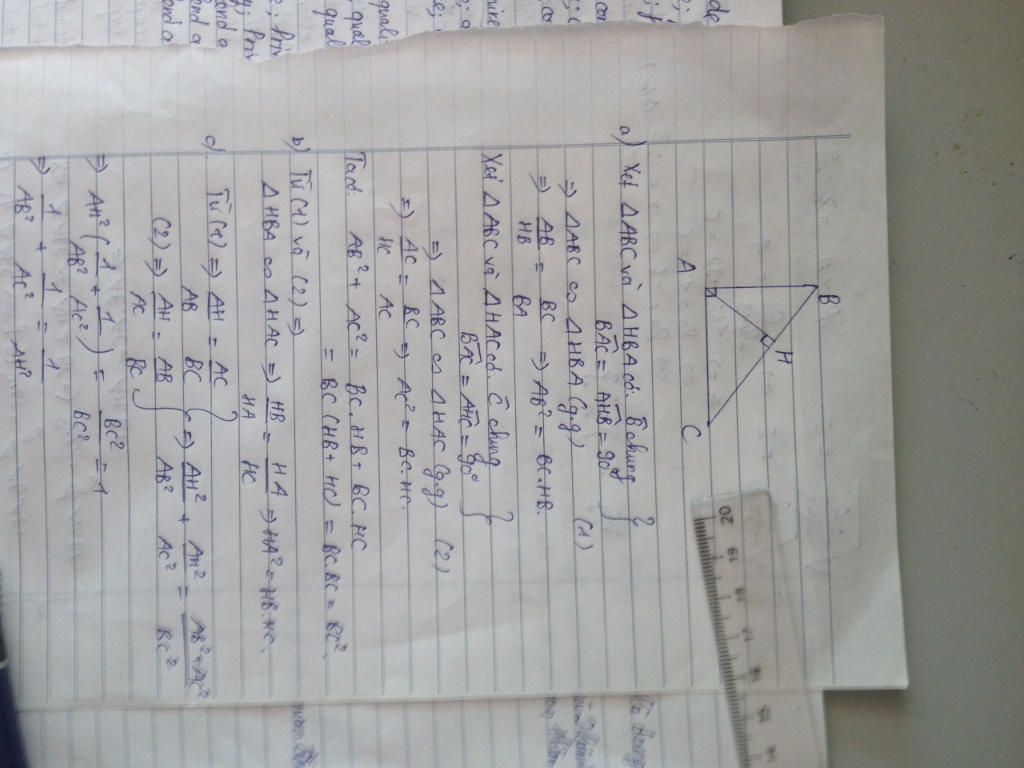 B
H
A
C
a) Xét ΔABC và ΔHBA có: B̂ chung
BÂC = AĤB = 90°
=> ΔABC ∽ ΔHBA (g.g) (1)
=> AB/HB = BC/BA => AB² = BC.HB.
Xét ΔABC và ΔHAC có: Ĉ chung
BÂC = AĤC = 90°
=> ΔABC ∽ ΔHAC (g.g) (2)
=> AC/HC = BC/AC => AC² = BC.HC.
Ta có: AB² + AC² = BC.HB + BC.HC
= BC(HB + HC) = BC.BC = BC².
b) Từ (1) và (2) =>
ΔHBA ∽ ΔHAC => HB/HA = HA/HC => HA² = HB.HC.
c) Từ (1) => AH/AB = AC/BC
(2) => AH/AC = AB/BC } => AH²/AB² + AH²/AC² = AB²+AC²/BC²
=> AH² (1/AB² + 1/AC²) = BC²/BC² = 1
=> 1/AB² + 1/AC² = 1/AH²
20 19 18